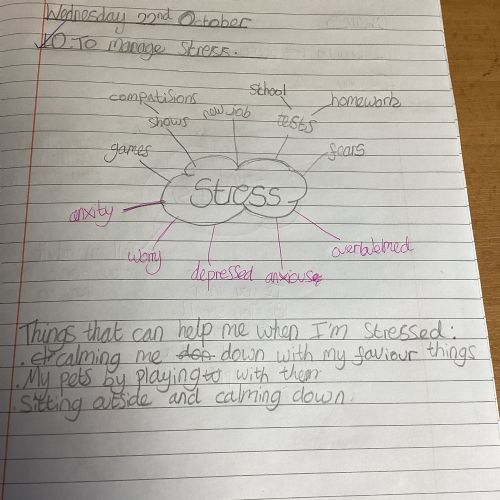 Wednesday 22nd October
LO: To manage stress.
school
compatisions
homework
new job
shows
tests
games
fears
Stress
anxity
overwelmed
worry
depressed
anxiouse
Things that can help me when I'm stressed:
. calming me down with my faviour things
. My pets by playing with them
. Sitting outside and calming down.